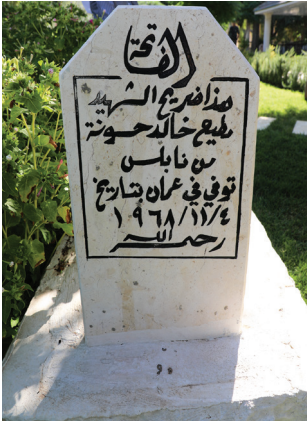 الفاتحة
هذا ضريح الشهيد
مطيع خالد حسونة
من نابلس
توفي في عمان بتاريخ
١٩٦٨/١١/٤
رحمه الله